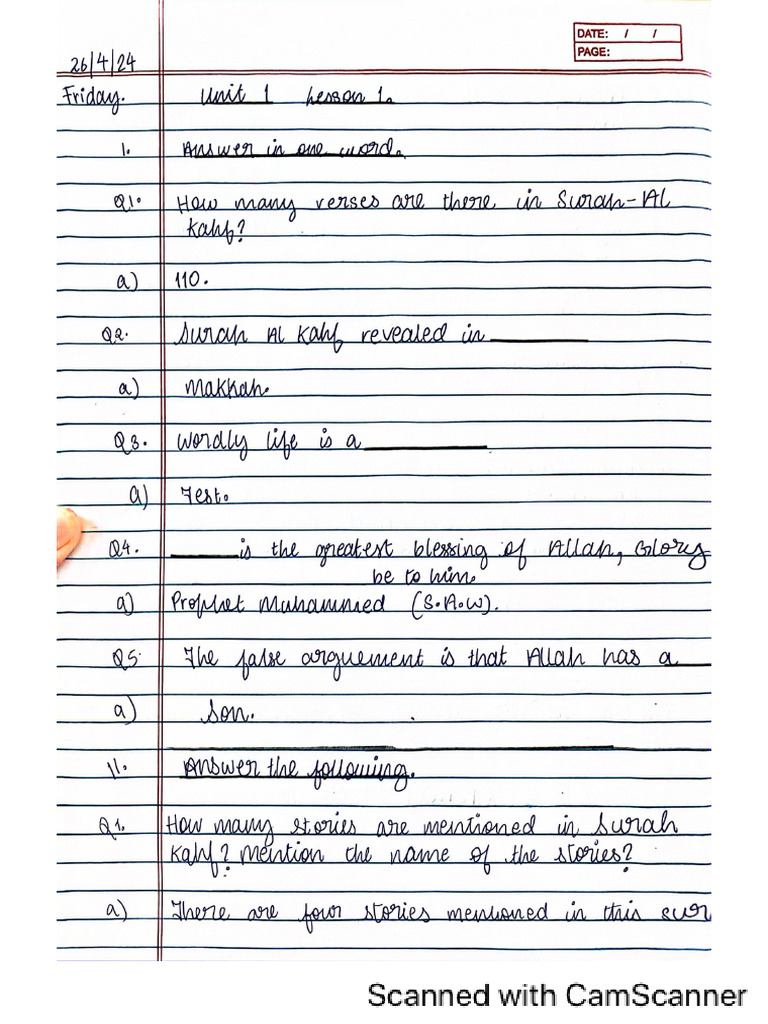 DATE: / /
PAGE:
26/4/24
Friday. Unit 1 Lesson 1.
1. Answer in one word.
Q1. How many verses are there in Surah-Al
Kahf?
a) 110.
Q2. Surah Al Kahf revealed in ________
a) Makkah.
Q3. Wordly life is a __________
a) Test.
Q4. ______ is the greatest blessing of Allah, Glory
be to him.
a) Prophet Muhammed (S.A.W).
Q5. The false arguement is that Allah has a ___
a) Son.
11. Answer the following.
Q1. How many stories are mentioned in Surah
Kahf? Mention the name of the stories?
a) There are four stories mentioned in this sur
Scanned with CamScanner